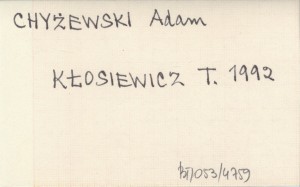 CHYŻEWSKI Adam
KŁOSIEWICZ T. 1992
BTJ053/4759